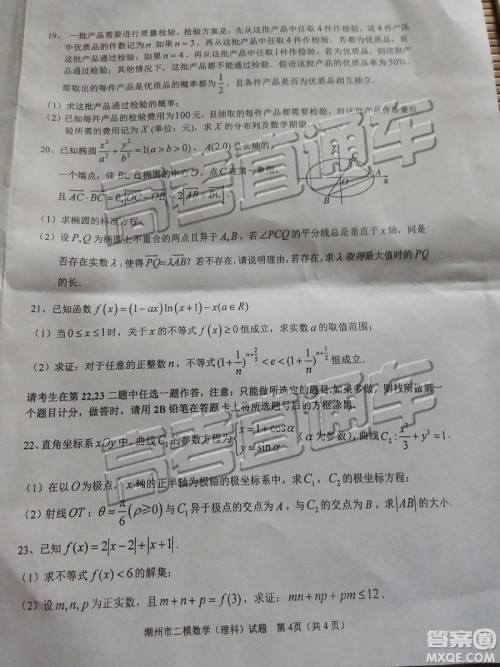 19、一批产品需要进行质量检验，检验方案是：先从这批产品中任取4件作检验，这4件产品
中优质品的件数记为n.如果n=3，再从这批产品中任取4件作检验，若都为优质品，则
这批产品通过检验；如果n=4，再从这批产品中任取1件作检验，若为优质品，则这批产品通过
检验；其他情况下，这批产品都不能通过检验。假设这批产品的优质品率为50%，
即取出的每件产品是优质品的概率都为1/2，且各件产品是否为优质品相互独立.
（1）求这批产品通过检验的概率；
（2）已知每件产品的检验费用为100元，且抽取的每件产品都需要检验，对这批产品作质量检
验所需的费用记为X（单位：元），求X的分布列及数学期望.
20、已知椭圆x²/a²+y²/b²=1(a>b>0)，A(2,0)是长轴的
一个端点，弦BC过椭圆的中心O，点C在第一象限，
且AC·BC=0,|OC-OB|=2|AB+BC|.
（1）求椭圆的标准方程；
（2）设P,Q为椭圆上不重合的两点且异于A,B，若∠PCQ的平分线总是垂直于x轴，问是
否存在实数λ，使得PQ=λAB？若不存在，请说明理由；若存在，求λ取得最大值时的PQ
的长.
21、已知函数f(x)=(1-ax)ln(x+1)-x(a∈R)
（1）当0≤x≤1时，关于x的不等式f(x)≥0恒成立，求实数a的取值范围；
（2）求证：对于任意的正整数n，不等式(1+1/n)^(n+2/5)<e<(1+1/n)^(n+1/2)恒成立.
请考生在第22,23二题中任选一题作答，注意：只能做所选定的题目.如果多做，则按所做第一
个题目计分，做答时，请用2B铅笔在答题卡上将所选题号后的方框涂黑.
22、直角坐标系xOy中，曲线C₁的参数方程为{x=1+cosα y=sinα（α为参数），曲线C₂:x²/3+y²=1.
（1）在以O为极点，x轴的正半轴为极轴的极坐标系中，求C₁，C₂的极坐标方程；
（2）射线OT：θ=π/6(ρ≥0)与C₁异于极点的交点为A，与C₂的交点为B，求|AB|的大小.
23、已知f(x)=2|x-2|+|x+1|.
（1）求不等式f(x)<6的解集；
（2）设m,n,p为正实数，且m+n+p=f(3)，求证：mn+np+pm≤12.
潮州市二模数学（理科）试题 第4页（共4页）
高考直通车
高考直通车
答案圈
DAANQUAN.COM